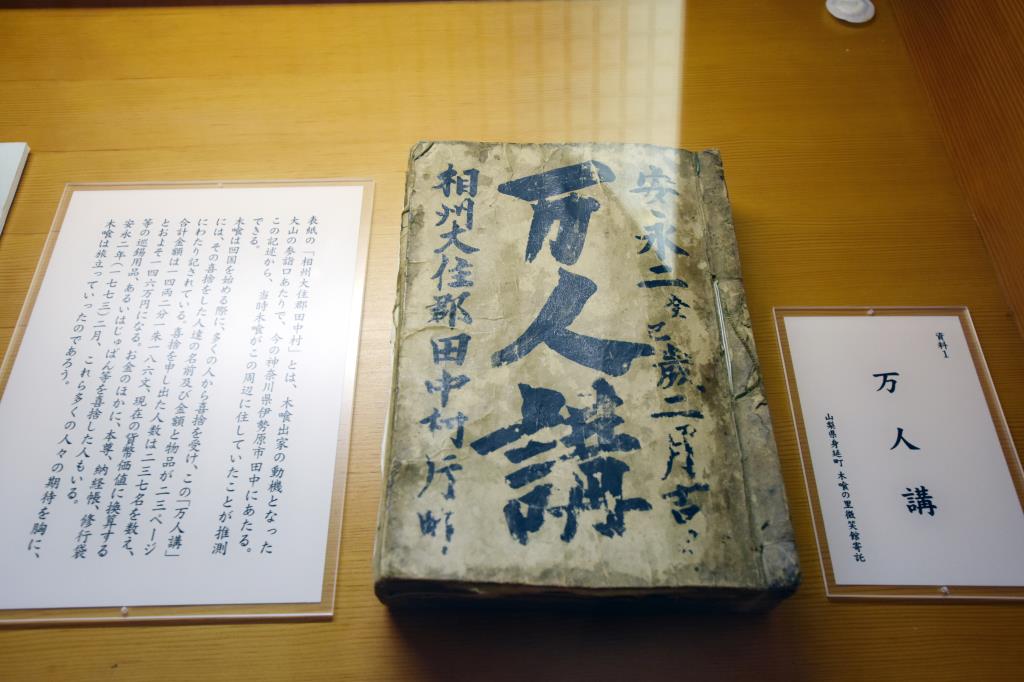 資料1
万人講
山梨県身延町 木喰の里微笑館寄託
安永二癸巳歳二月吉
万人講
相州大住郡田中村
表紙の「相州大住郡田中村」とは、木喰出家の動機となった
大山の参詣口あたりで、今の神奈川県伊勢原市田中にあたる。
この記述から、当時木喰がこの周辺に住していたことが推測
できる。
木喰は回国を始める際に、多くの人から喜捨を受け、この「万人講」
には、その喜捨をした人達の名前及び金額と物品が二三ページ
にわたり記されている。喜捨を申し出た人数は二三七名を数え、
合計金額は一四両二分一朱一八六文、現在の貨幣価値に換算する
とおよそ一四六万円になる。お金のほかに、本尊、納経帳、修行袋
等の巡錫用品、あるいはじゅばん等を喜捨した人もいる。
安永二年(一七七三)二月、これら多くの人々の期待を胸に、
木喰は旅立っていったのであろう。